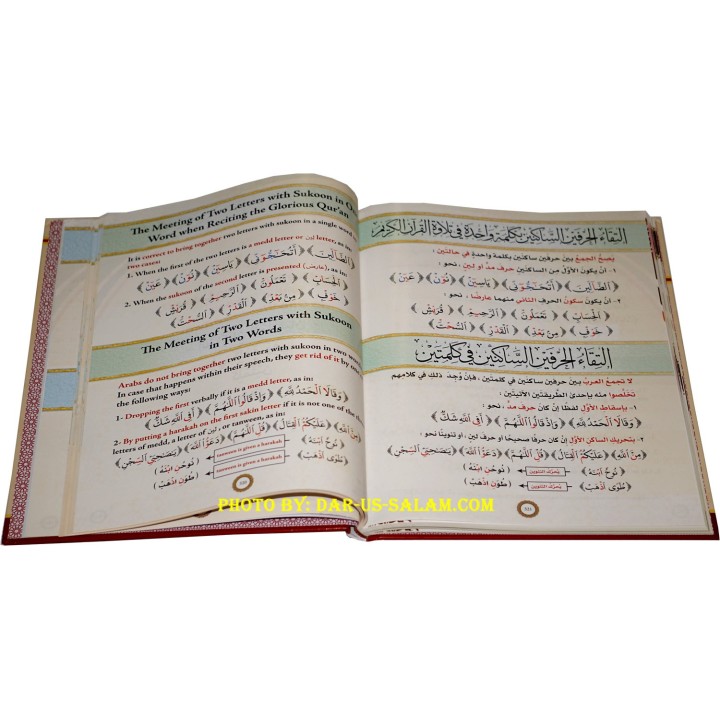 The Meeting of Two Letters with Sukoon in
Word when Reciting the Glorious Qur'an
It is correct to bring together two letters with sukoon in a single
two cases:
1. When the first of the two letters is a medd letter or لين letter, as in:
﴿الضَّآلِّينَ﴾ ﴿أَتُحَـٰٓجُّوٓنِّى﴾ ﴿يَاسِيٓنْ﴾ ﴿نُوٓنْ﴾ ﴿عَيْنْ﴾
2. When the sukoon of the second letter is presented (عارض), as in:
﴿الْحِسَابْ﴾ ﴿تَعْمَلُونْ﴾ ﴿الرَّحِيمْ﴾ ﴿قُرَيْشْ﴾
﴿خَوْفْ﴾ ﴿مِنْ بَعْدْ﴾ ﴿الْقَدْرْ﴾ ﴿السُّحْتْ﴾
The Meeting of Two Letters with Sukoon
in Two Words
Arabs do not bring together two letters with sukoon in two
In case that happens within their speech, they get rid of it by
the following ways:
1- Dropping the first verbally if it is a medd letter, as in:
﴿وَقَالَا ٱلْحَمْدُ لِلَّهِ﴾ ﴿وَإِذْ قَالُوا۟ ٱللَّهُمَّ﴾ ﴿أَفِى ٱللَّهِ شَكٌّ﴾
2- By putting a harakah on the first sakin letter if it is not one of the
letters of medd, a letter of لين, or tanween, as in:
﴿مِنَ ٱللَّهِ﴾ ﴿عَلَيْكُمُ ٱلْقِتَالُ﴾ ﴿قُلِ ٱللَّهُمَّ﴾ ﴿دَعَوَا ٱللَّهَ﴾ ﴿يَـٰصَـٰحِبَىِ ٱلسِّجْنِ﴾
﴿نُوحٌ ٱبْنَهُ﴾ tanween is given a harakah (نُوحُنِ ٱبْنَهُ)
﴿طُوًى ٱذْهَبْ﴾ tanween is given a harakah (طُوَنِ ٱذْهَبْ)
التقاء الحرفين الساكنين بكلمة واحدة في تلاوة القرآن الكريم
يصحّ الجمع بين حرفين ساكنين بكلمة واحدة في حالتين:
١- أن يكون الأوّل من الساكنين حرف مد أو لين، نحو:
﴿الضَّآلِّينَ﴾ ﴿أَتُحَـٰٓجُّوٓنِّى﴾ ﴿يَاسِيٓنْ﴾ ﴿نُوٓنْ﴾ ﴿عَيْنْ﴾
٢- أن يكون سكون الحرف الثاني منهما عارضًا، نحو:
﴿الْحِسَابْ﴾ ﴿تَعْمَلُونْ﴾ ﴿الرَّحِيمْ﴾ ﴿قُرَيْشْ﴾
﴿خَوْفْ﴾ ﴿مِنْ بَعْدْ﴾ ﴿الْقَدْرْ﴾ ﴿السُّحْتْ﴾
التقاء الحرفين الساكنين في كلمتين
لا تجمع العرب بين حرفين ساكنين في كلمتين، فإن وُجد ذلك في كلامهم
تخلّصوا منه بإحدى الطريقتين الآتيتين:
١- بإسقاط الأوّل لفظًا إن كان حرف مد، نحو:
﴿وَقَالَا ٱلْحَمْدُ لِلَّهِ﴾ ﴿وَإِذْ قَالُوا۟ ٱللَّهُمَّ﴾ ﴿أَفِى ٱللَّهِ شَكٌّ﴾
٢- بتحريك الساكن الأوّل إن كان حرفًا صحيحًا أو حرف لين، أو تنوينًا نحو:
﴿مِنَ ٱللَّهِ﴾ ﴿عَلَيْكُمُ ٱلْقِتَالُ﴾ ﴿قُلِ ٱللَّهُمَّ﴾ ﴿دَعَوَا ٱللَّهَ﴾ ﴿يَـٰصَـٰحِبَىِ ٱلسِّجْنِ﴾
﴿نُوحٌ ٱبْنَهُ﴾ يُحرّك التنوين (نُوحُنِ ٱبْنَهُ)
﴿طُوًى ٱذْهَبْ﴾ يُحرّك التنوين (طُوَنِ ٱذْهَبْ)
PHOTO BY: DAR-US-SALAM.COM